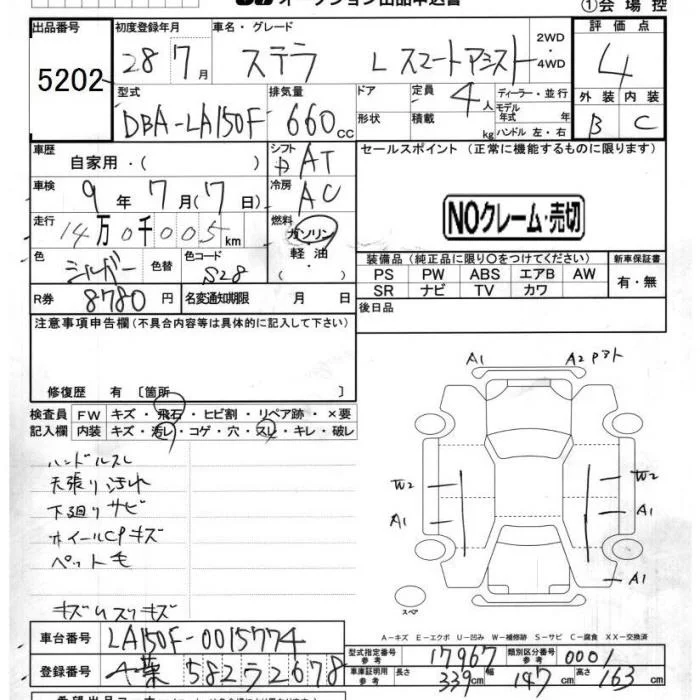 オークション出品申込書
①会場控
出品番号 初度登録年月 車名・グレード 2WD ・4WD 評価点
5202 28 7月 ステラ L スマートアシスト 4
型式 排気量 ドア 定員 4人 ディーラー・並行 外装 内装
DBA-LA150F 660cc 形状 積載 kg モデル年式 年 ハンドル 左・右 B C
車歴 自家用・( ) シフト AT セールスポイント (正常に機能するものに限ります)
車検 9年7月(7日) 冷房 AC
NOクレーム・売切
走行 14万0千005km 燃料 ガソリン 軽油 ( )
色 シルバー 色替 色コード S28 装備品 (純正品に限り○をつけてください) 新車保証書
PS PW ABS エアB AW 有・無
SR ナビ TV カワ
R券 8780円 名変通知期限 月 日 後日品
注意事項申告欄 (不具合内容等は具体的に記入して下さい)
修復歴 有 [箇所 ]
検査員 FW キズ・飛石・ヒビ割・リペア跡・×要
記入欄 内装 キズ・汚レ・コゲ・穴・スレ・キレ・破レ
ハンドルスレ
天張り汚れ
下廻りサビ
ホイールCPキズ
ペット毛
キズ スリキズ
A1 A2
W2 W2
A1 A1
A1
スペア
A-キズ E-エクボ U-凹み W-補修跡 S-サビ C-腐食 XX-交換済
車台番号 LA150F-0015774 型式指定番号 参考 17967 類別区分番号 参考 0001
登録番号 千葉 582 2678 車体証明用 参考 長さ 339cm 幅 147cm 高さ 163cm